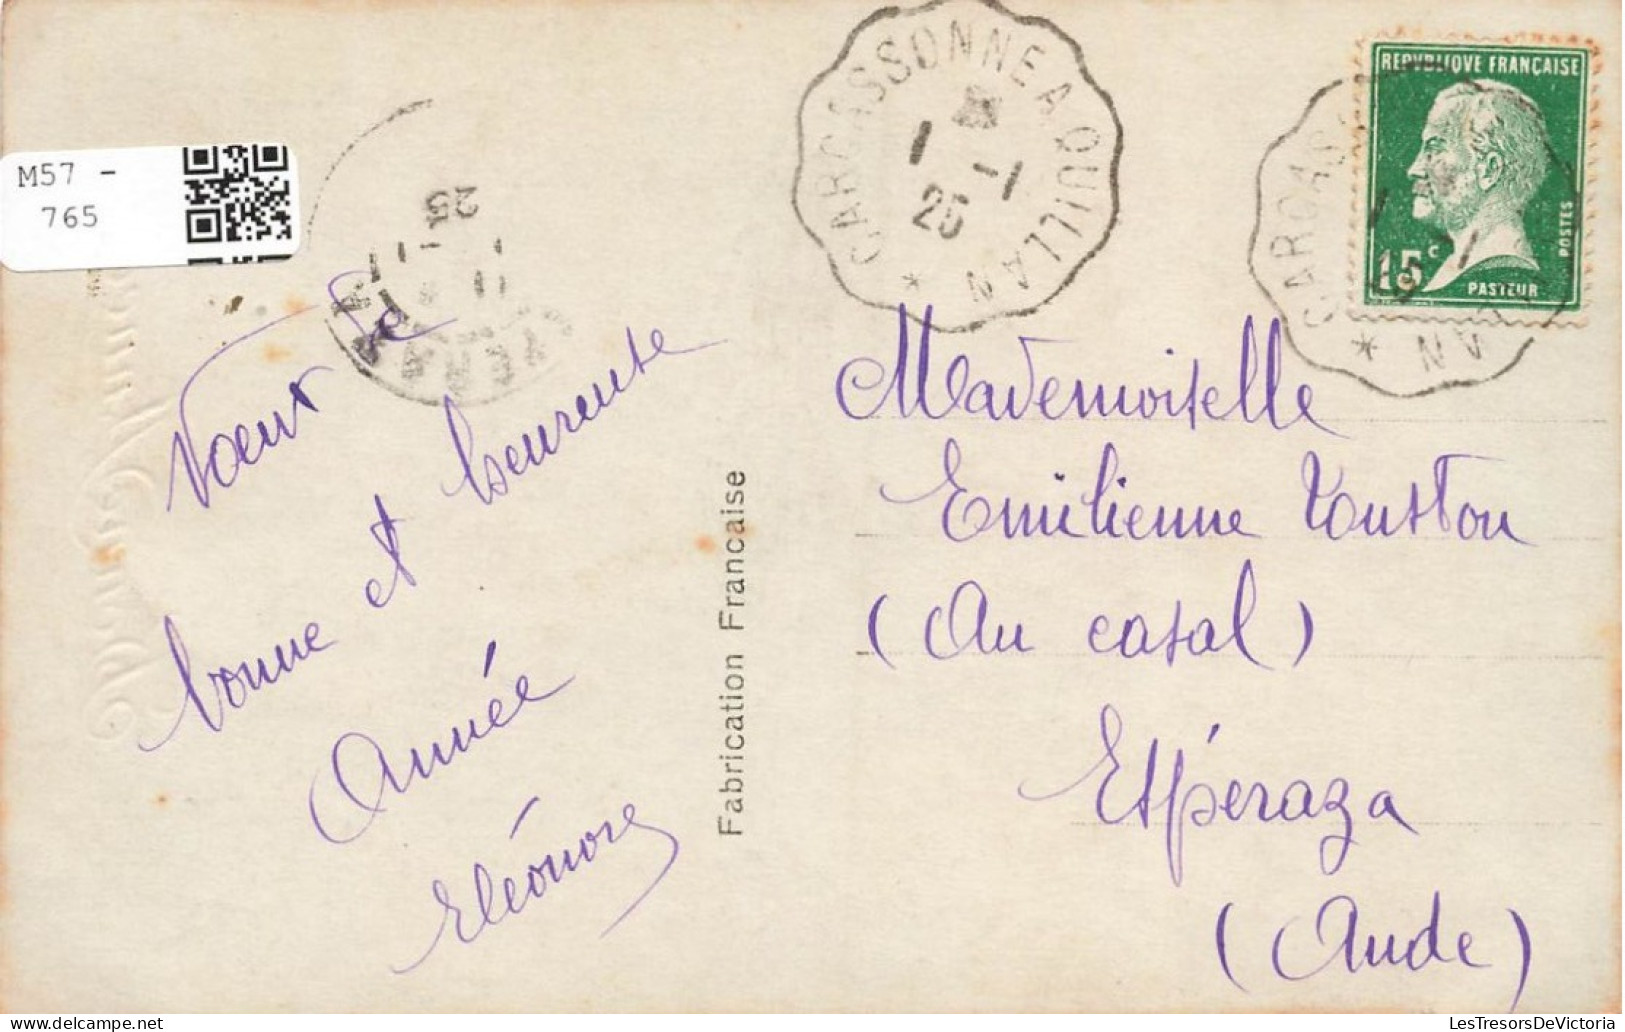 M57 -
765
CARCASSONNE A QUILLAN *
1 -1
25
REPVBLIQVE FRANÇAISE
POSTES
15 c
PASTEUR
CARCAS
AN *
25
Voeux de
bonne et heureuse
Année
Eléonore
Fabrication Française
Mademoiselle
Emilienne Touston
(Au casal)
Espéraza
(Aude)
LesTresorsDeVictoria